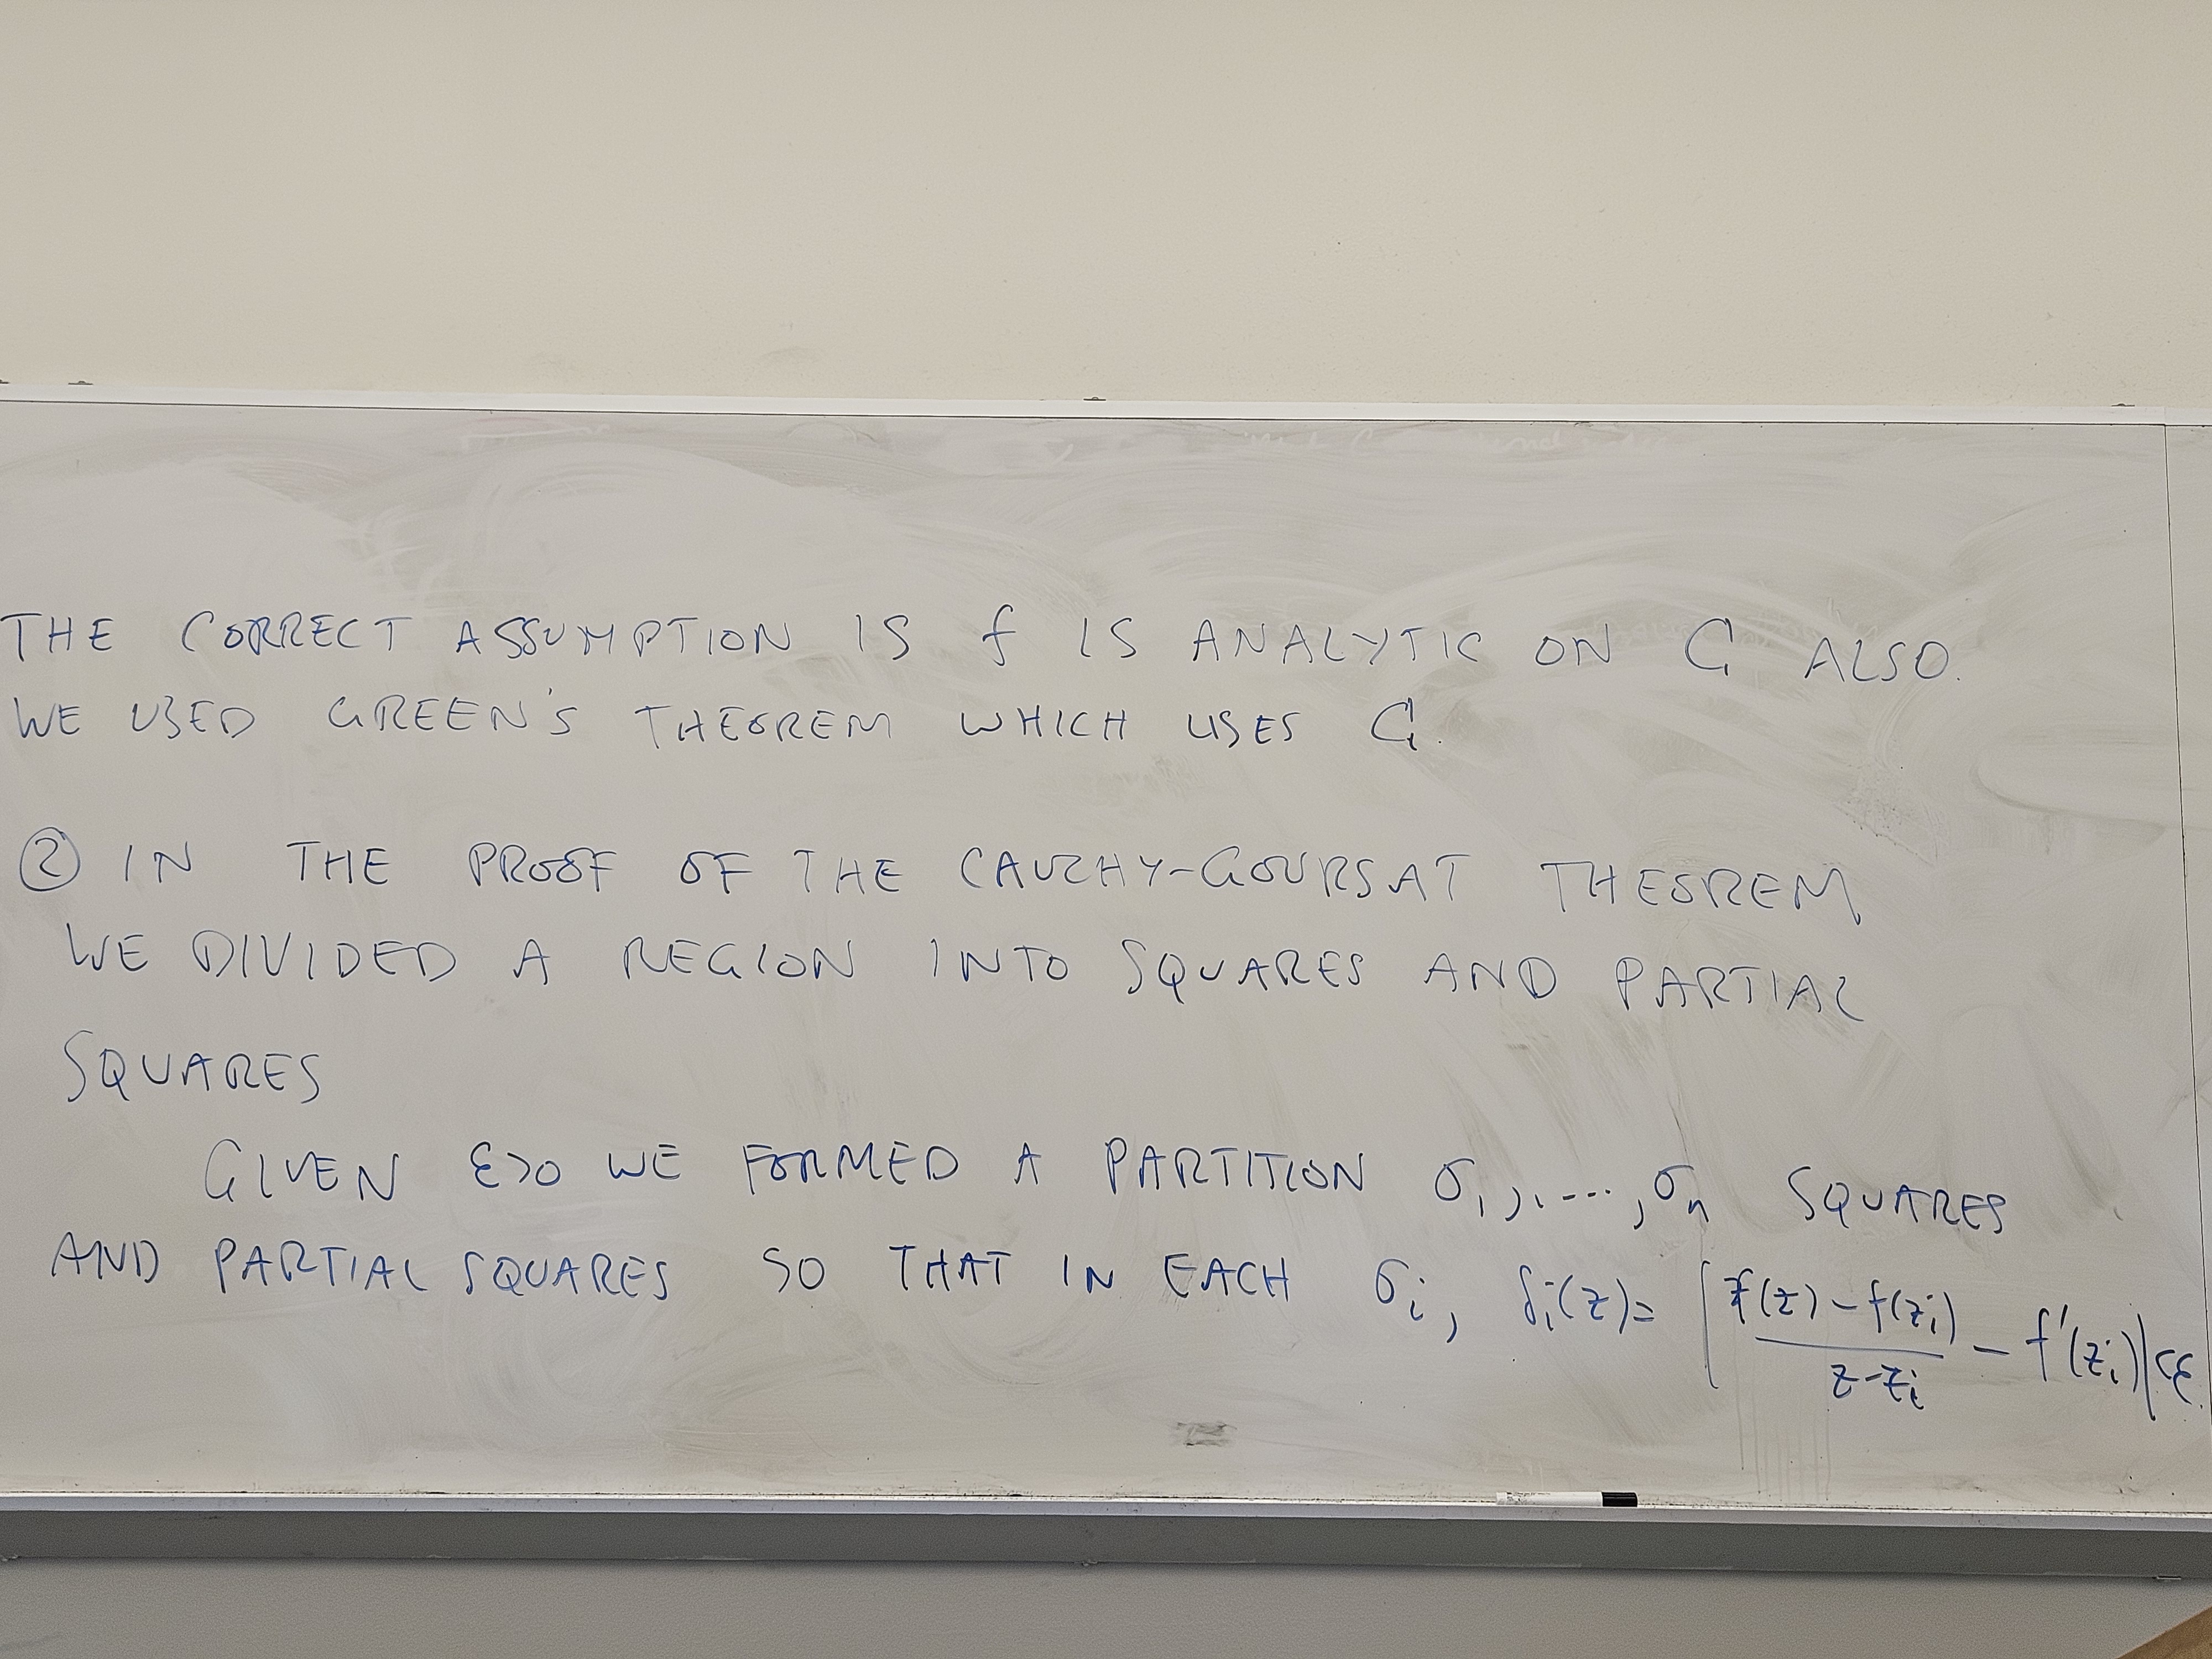 THE CORRECT ASSUMPTION IS f IS ANALYTIC ON C ALSO.
WE USED GREEN'S THEOREM WHICH USES C.
② IN THE PROOF OF THE CAUCHY-GOURSAT THEOREM
WE DIVIDED A REGION INTO SQUARES AND PARTIAL
SQUARES
GIVEN ε>0 WE FORMED A PARTITION σ₁,...,σₙ SQUARES
AND PARTIAL SQUARES SO THAT IN EACH σᵢ, δᵢ(z)= |(f(z)-f(zᵢ))/(z-zᵢ) - f'(zᵢ)|<ε.